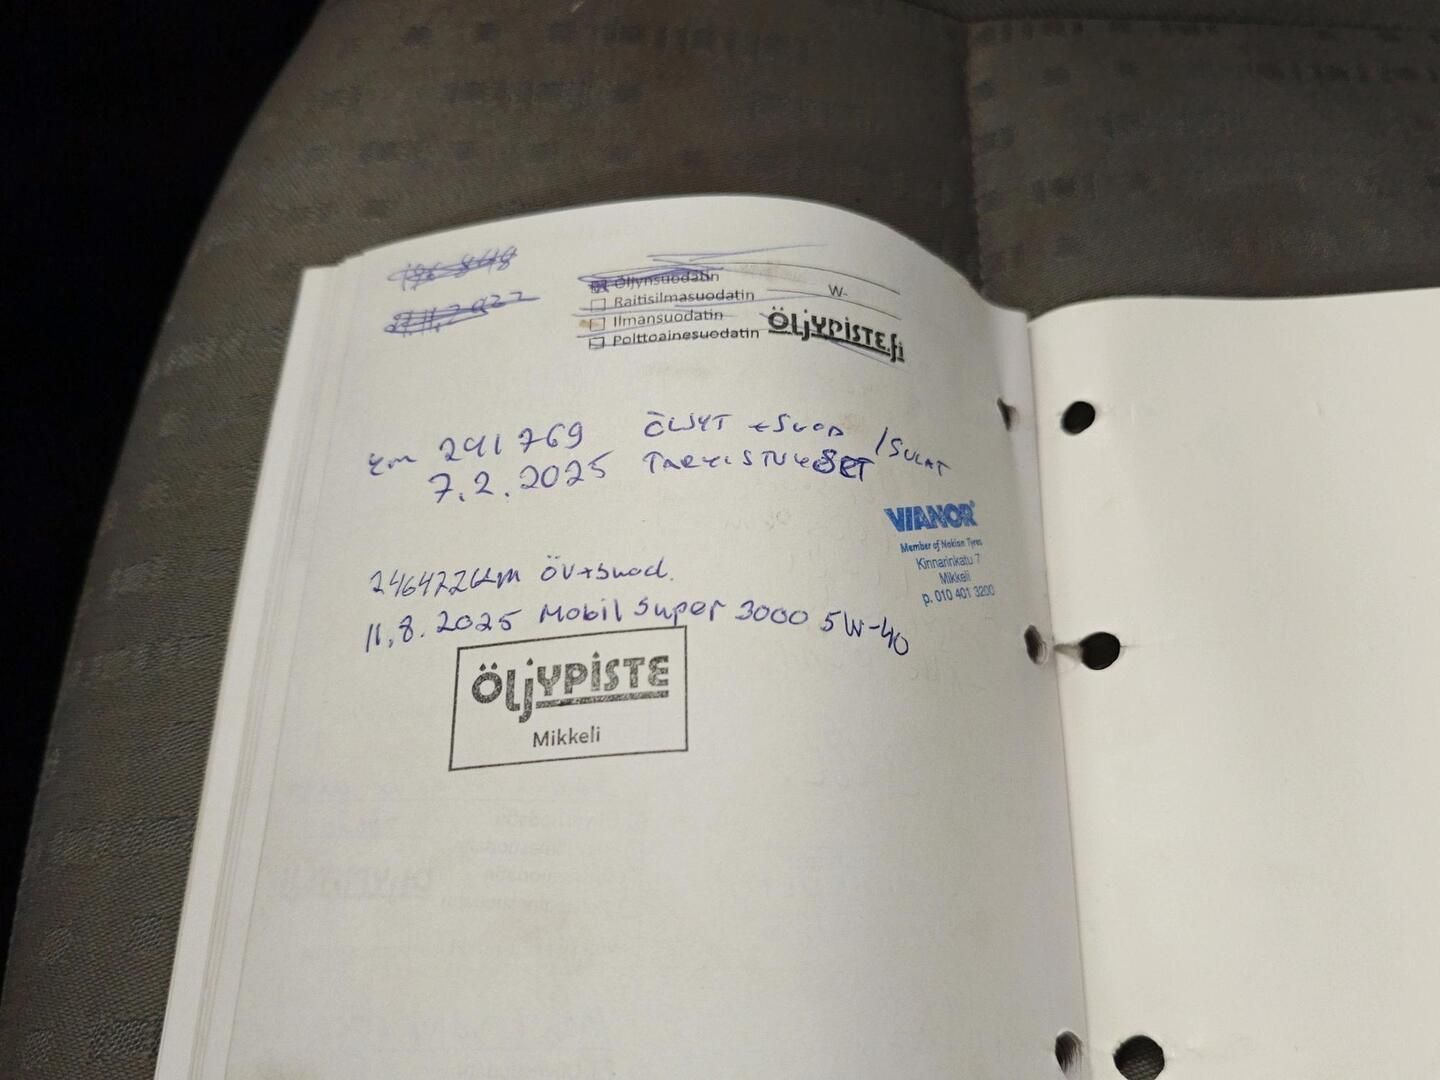 196 848
27.11.2022
Öljynsuodatin
Raitisilmasuodatin
Ilmansuodatin
Polttoainesuodatin
W-
ÖLJYPISTE.fi
km 241 769 ÖLJYT + SUOD / SULAT
7.2.2025 TARKISTUKSET
VIANOR
Member of Nokian Tyres
Kinnarinkatu 7
Mikkeli
p. 010 401 3200
246422km ÖV+suod.
11.8.2025 Mobil Super 3000 5W-40
ÖLJYPISTE
Mikkeli